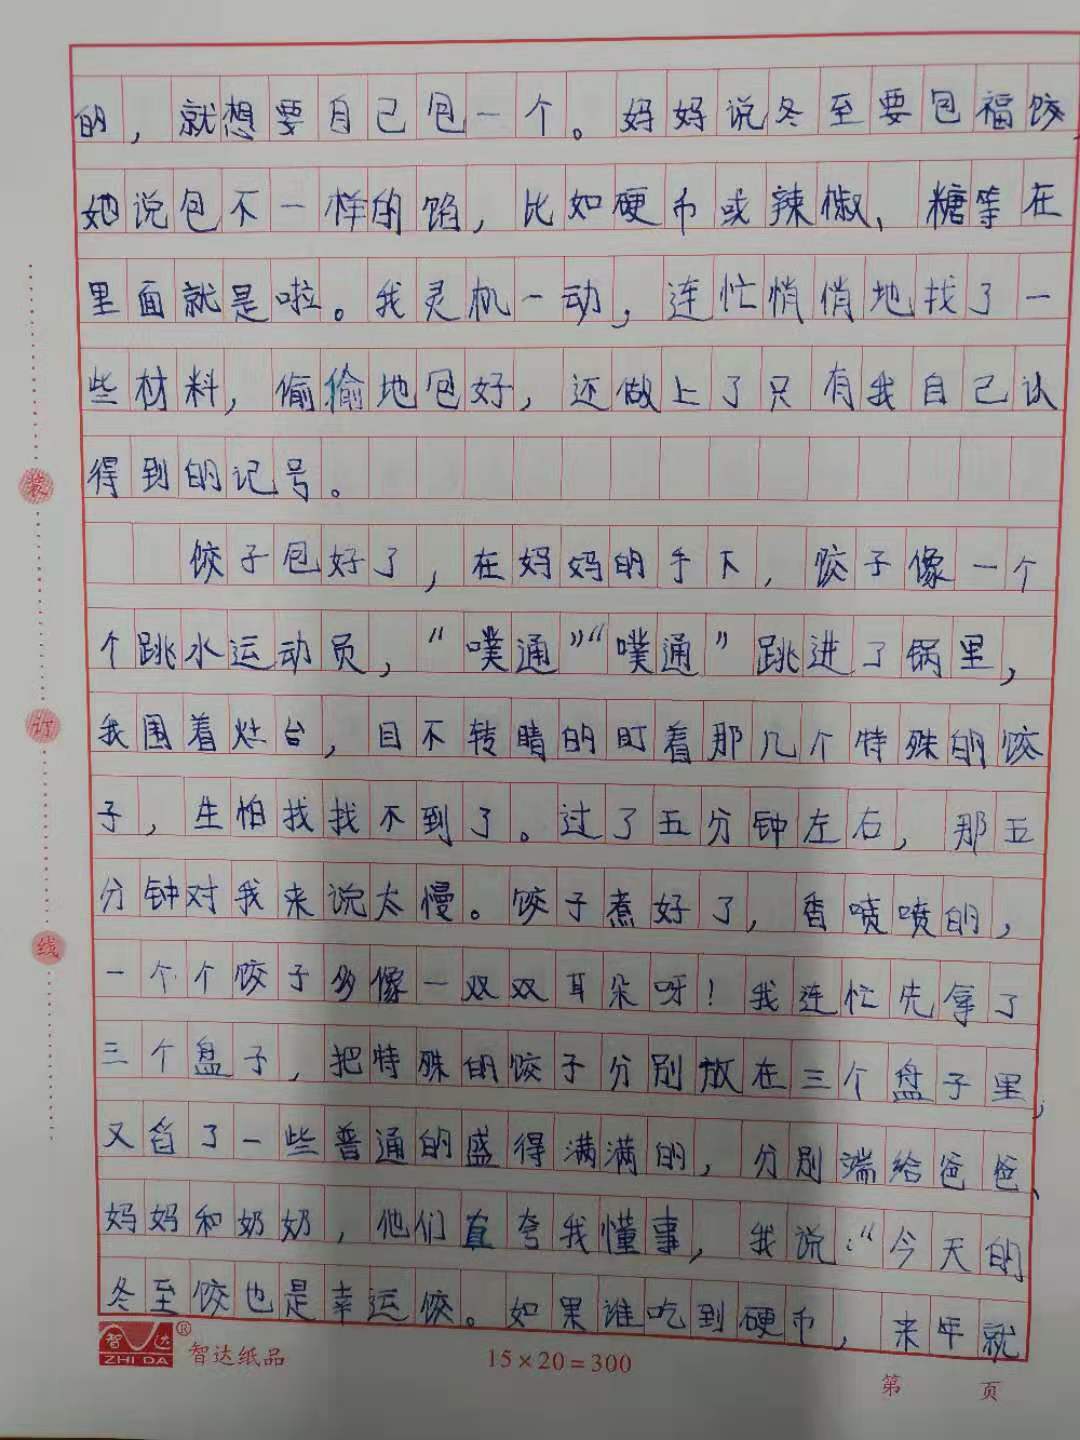 的，就想要自己包一个。妈妈说冬至要包福饺，
她说包不一样的馅，比如硬币或辣椒、糖等在
里面就是啦。我灵机一动，连忙悄悄地找了一
些材料，偷偷地包好，还做上了只有我自己认
得到的记号。
饺子包好了，在妈妈的手下，饺子像一个
个跳水运动员，“噗通”“噗通”跳进了锅里，
我围着灶台，目不转睛的盯着那几个特殊的饺
子，生怕找找不到了。过了五分钟左右，那五
分钟对我来说太慢。饺子煮好了，香喷喷的，
一个个饺子多像一双双耳朵呀！我连忙先拿了
三个盘子，把特殊的饺子分别放在三个盘子里，
又舀了一些普通的盛得满满的，分别端给爸爸、
妈妈和奶奶，他们直夸我懂事，我说：“今天的
冬至饺也是幸运饺。如果谁吃到硬币，来年就
装
订
线
智达
ZHI DA
®
智达纸品
15×20=300
第 页